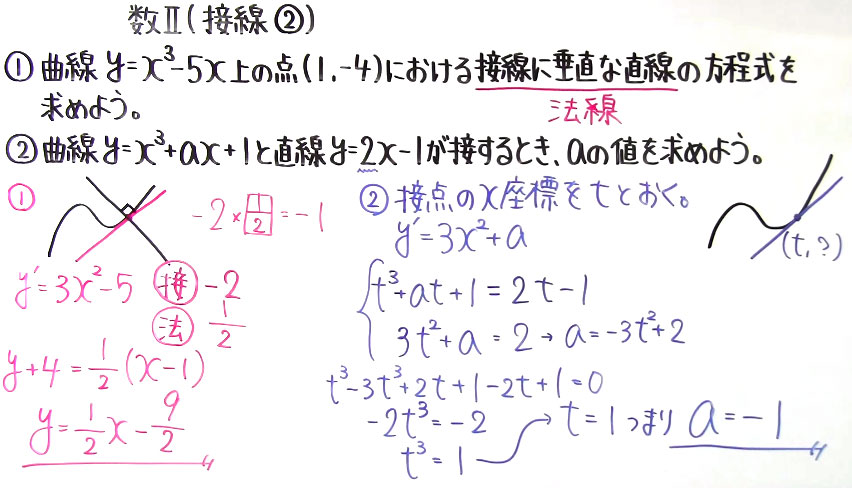 数Ⅱ(接線②)
①曲線 y=x³-5x上の点(1,-4)における接線に垂直な直線の方程式を
求めよう。
法線
②曲線y=x³+ax+1と直線y=2x-1が接するとき、aの値を求めよう。
①
-2×1/2=-1
y'=3x²-5 接 -2
法 1/2
y+4=1/2(x-1)
y=1/2x-9/2
②接点のx座標をtとおく。
(t,?)
y'=3x²+a
t³+at+1=2t-1
3t²+a=2→a=-3t²+2
t³-3t³+2t+1-2t+1=0
-2t³=-2
t³=1
t=1つまり a=-1